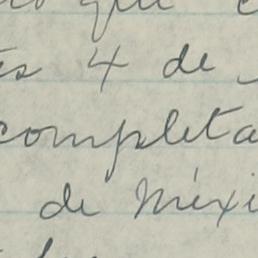 que
4 de
completa
de Méxi